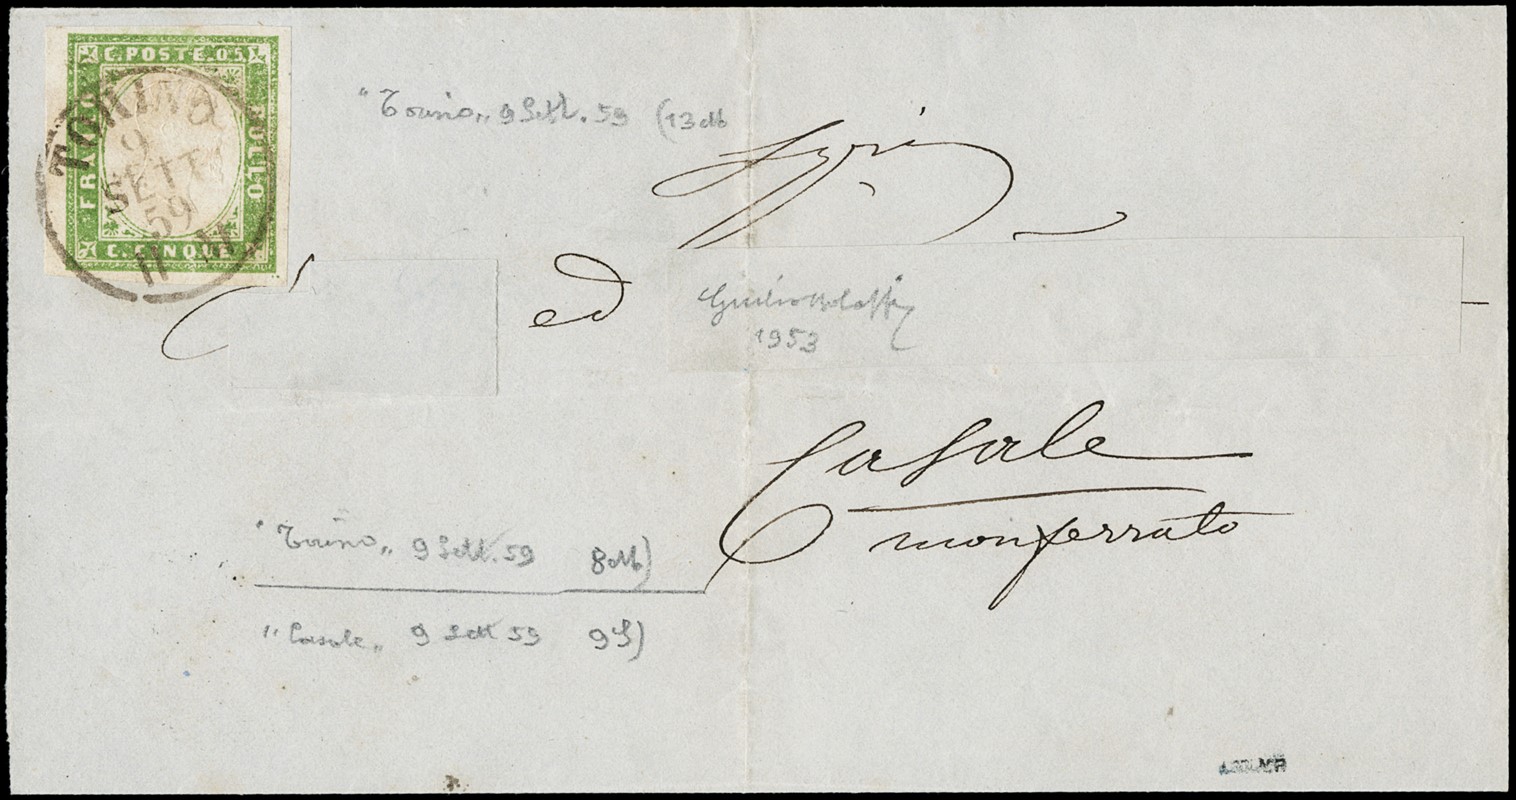 C. POSTE. 05.
FRANCO
BOLLO
C. CINQUE
TORINO
9
SETT
59
11 M
"Torino" 9 Sett. 59 (13
ed
Giulio Bolaffi
1953
Casale
Monferrato
"Torino" 9 Sett. 59 8
"Casale" 9 Sett 59 9